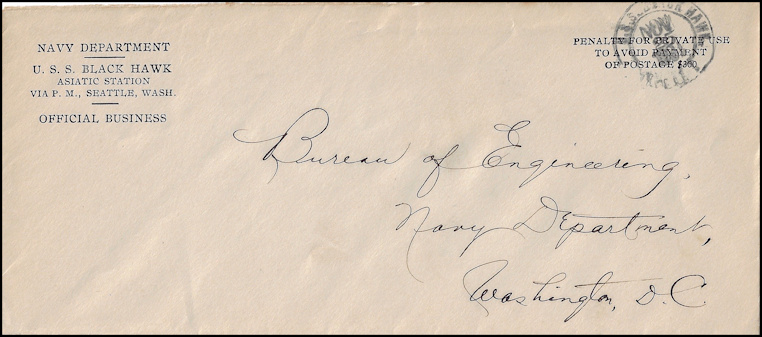 NAVY DEPARTMENT
U. S. S. BLACK HAWK
ASIATIC STATION
VIA P. M., SEATTLE, WASH.
OFFICIAL BUSINESS
U.S.S. BLACK HAWK
NOV
PENALTY FOR PRIVATE USE
TO AVOID PAYMENT
OF POSTAGE $300
Bureau of Engineering,
Navy Department,
Washington, D.C.